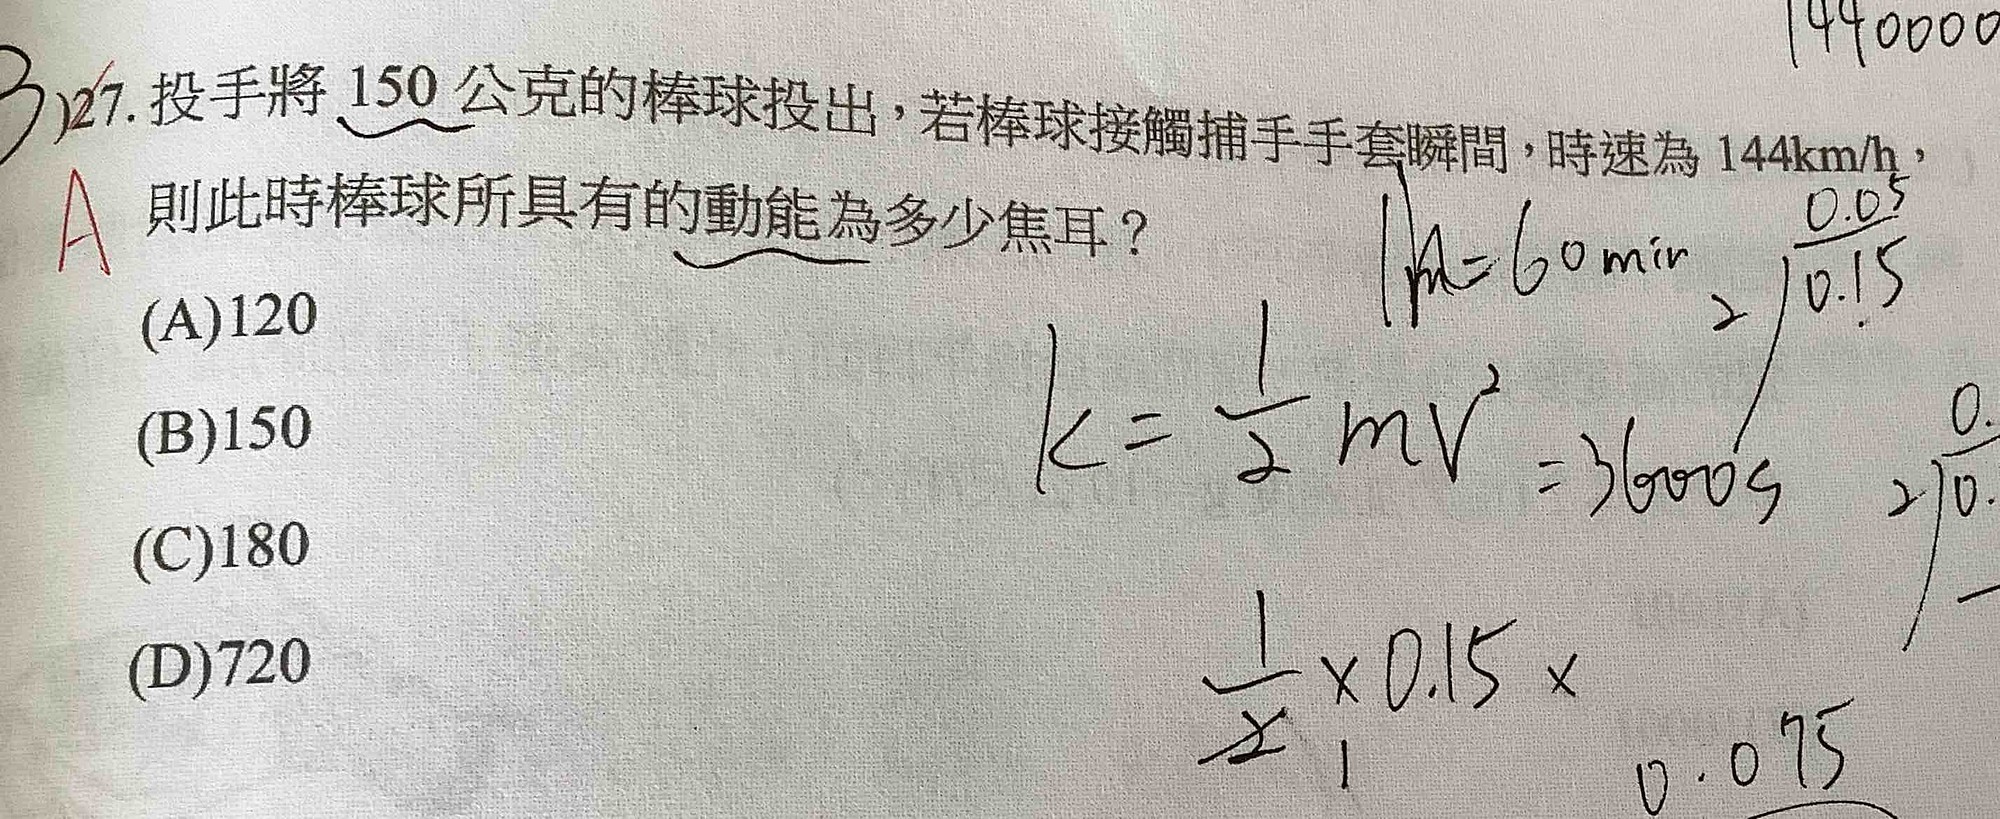 1440000
27.投手將 150 公克的棒球投出，若棒球接觸捕手手套瞬間，時速為 144km/h，
A 則此時棒球所具有的動能為多少焦耳？
(A)120
(B)150
(C)180
(D)720
1h=60min
=3600s
0.05
2)0.15
k=1/2 mv²
0.
2)0.
1/2 × 0.15 ×
1
0.075